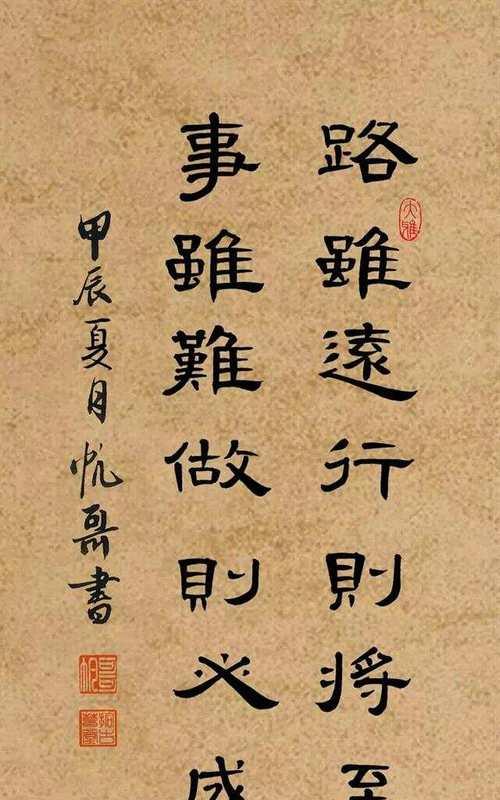 路雖遠行則将至
事雖難做則必成
甲辰夏月帆哥書